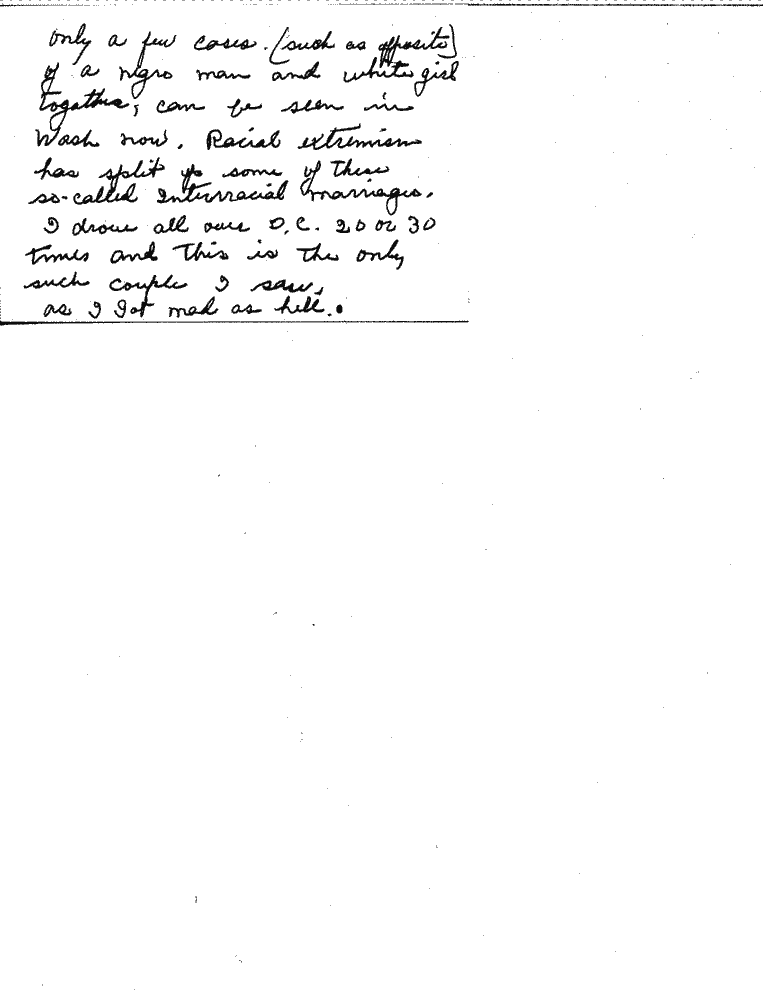 only a few cases. (such as opposite)
of a negro man and white girl
together, can be seen in
Wash now. Racial extremism
has split up some of these
so-called Interracial marriages.
I drove all over D.C. 20 or 30
times and this is the only
such couple I saw,
as I got mad as hell.